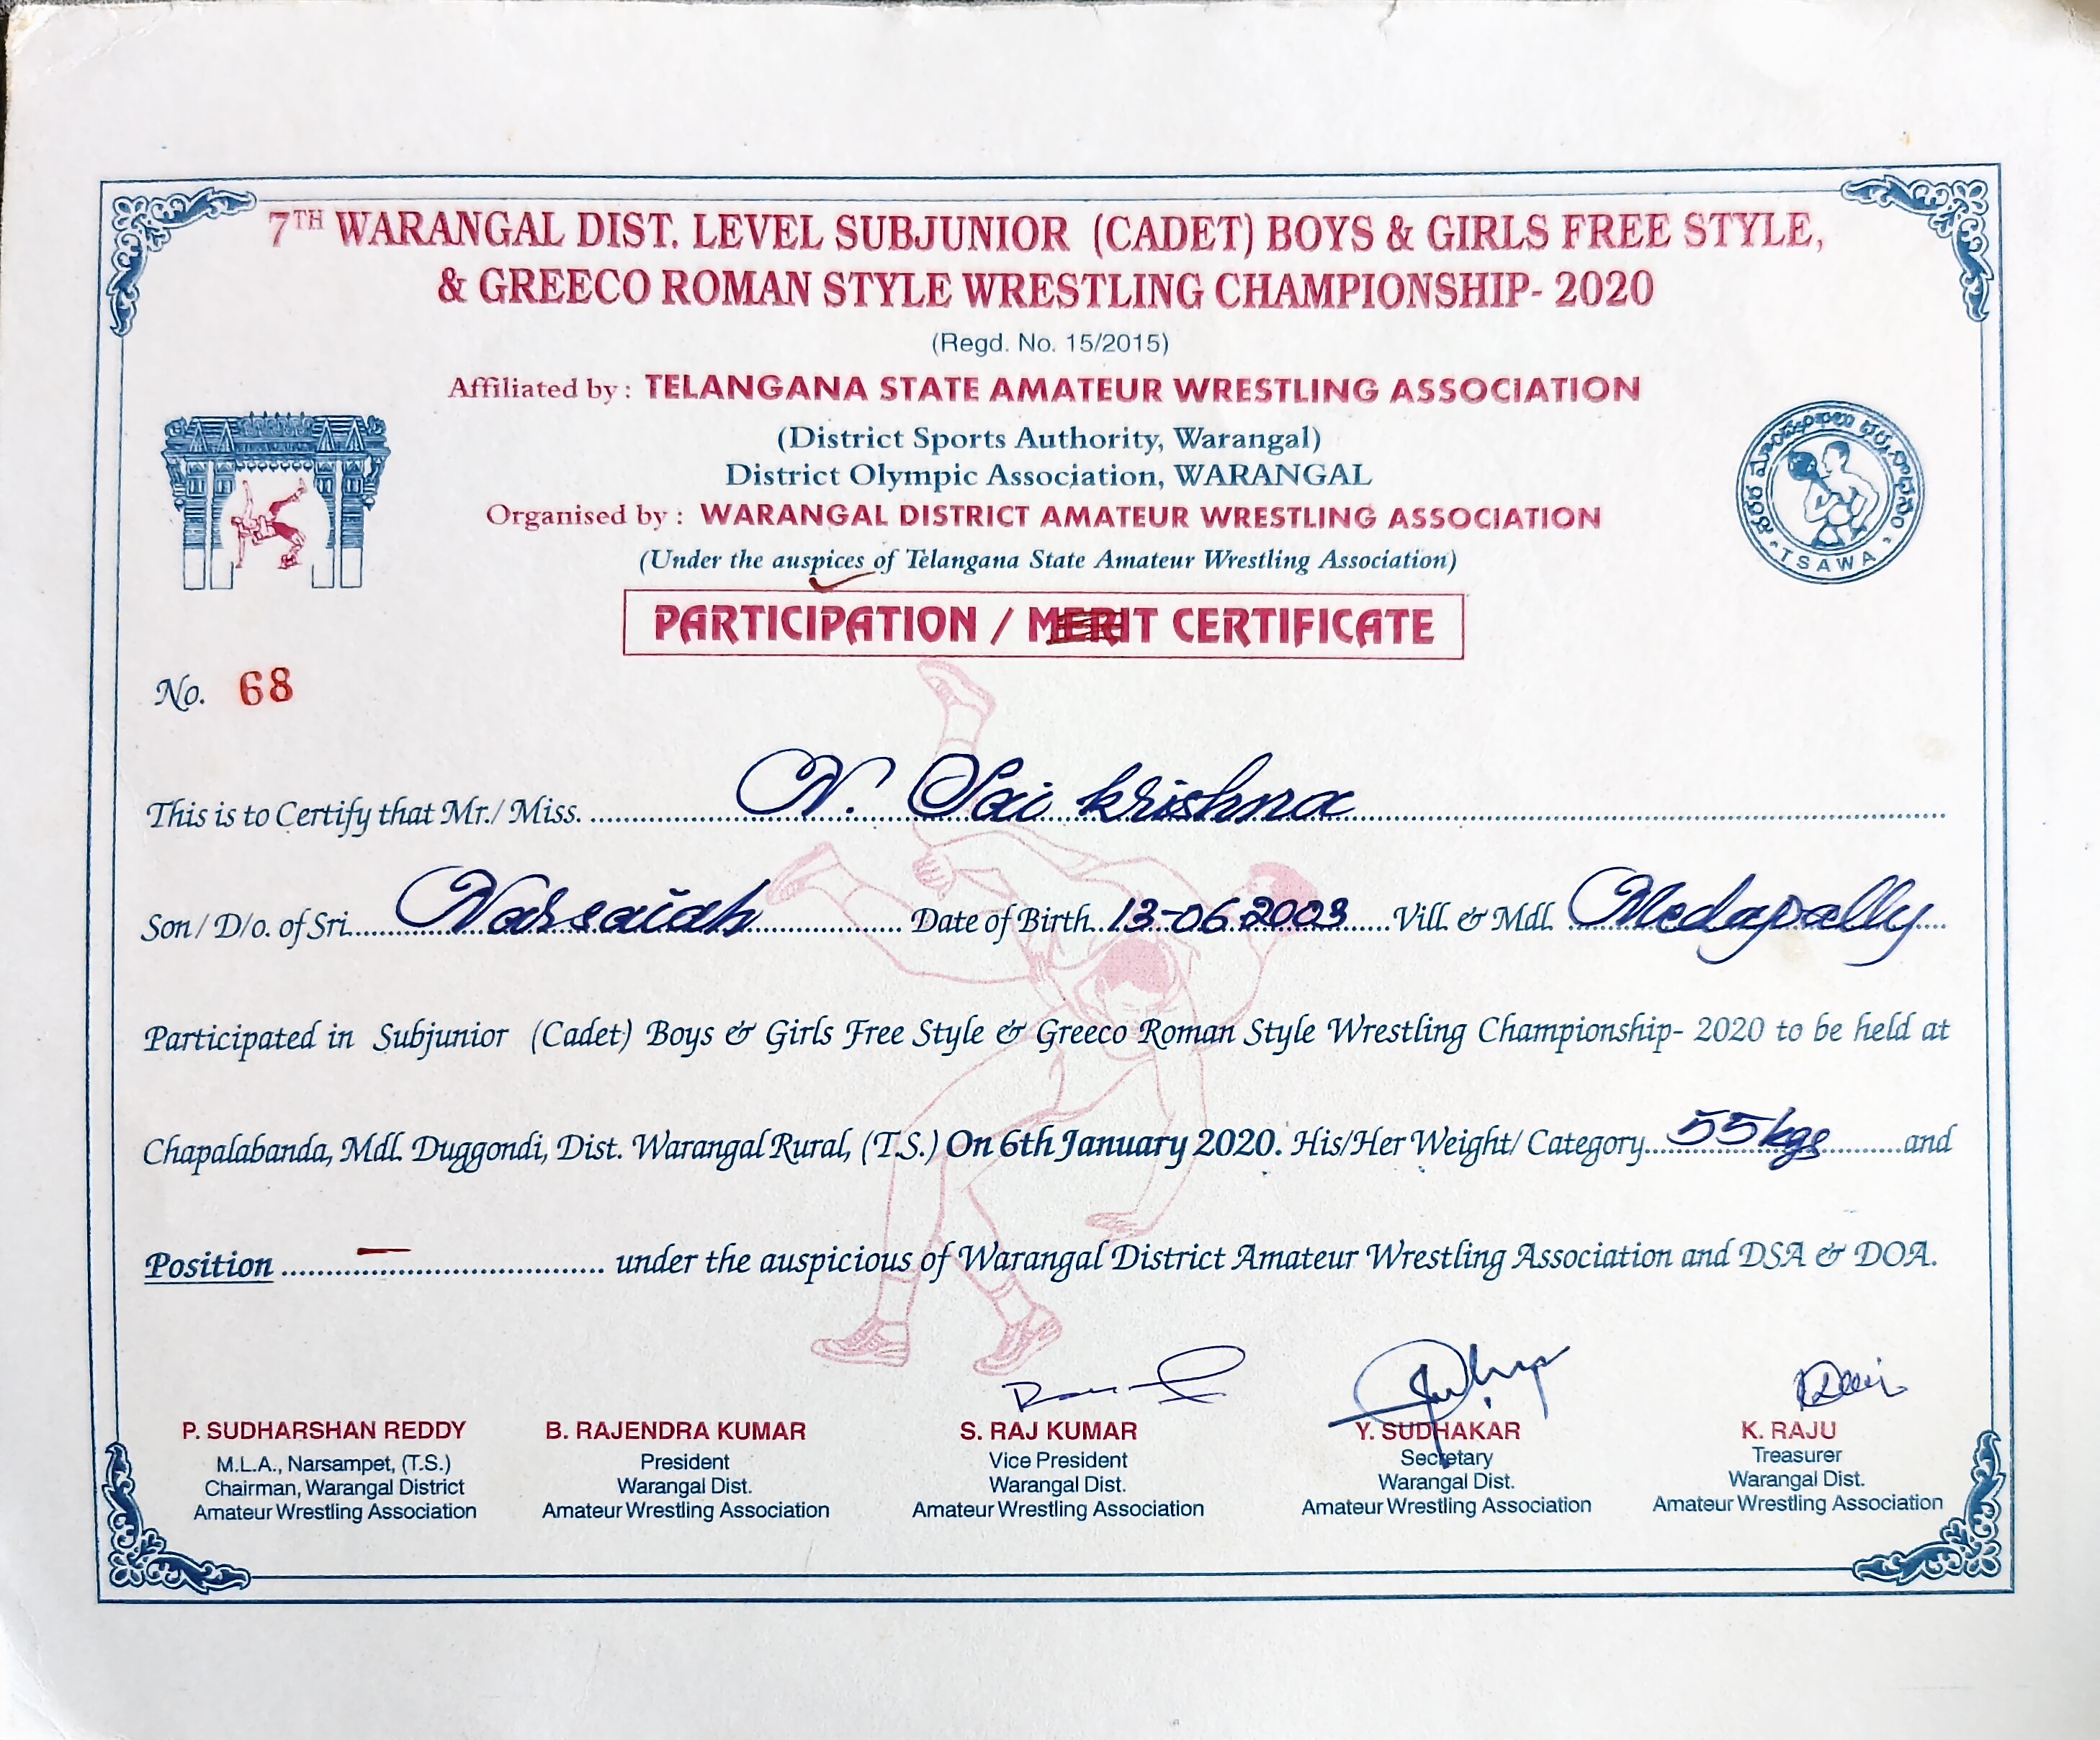 7TH WARANGAL DIST. LEVEL SUBJUNIOR (CADET) BOYS & GIRLS FREE STYLE,
& GREECO ROMAN STYLE WRESTLING CHAMPIONSHIP- 2020
(Regd. No. 15/2015)
Affiliated by : TELANGANA STATE AMATEUR WRESTLING ASSOCIATION
(District Sports Authority, Warangal)
District Olympic Association, WARANGAL
Organised by : WARANGAL DISTRICT AMATEUR WRESTLING ASSOCIATION
(Under the auspices of Telangana State Amateur Wrestling Association)
TSAWA
PARTICIPATION / MERIT CERTIFICATE
No. 68
This is to Certify that Mr./ Miss. N. Sai krishna
Son / D/o. of Sri. Narsaiah Date of Birth 13-06-2003 Vill. & Mdl. Medapally
Participated in Subjunior (Cadet) Boys & Girls Free Style & Greeco Roman Style Wrestling Championship- 2020 to be held at
Chapalabanda, Mdl. Duggondi, Dist. Warangal Rural, (T.S.) On 6th January 2020. His/Her Weight/ Category 55 kgs and
Position — under the auspicious of Warangal District Amateur Wrestling Association and DSA & DOA.
P. SUDHARSHAN REDDY
M.L.A., Narsampet, (T.S.)
Chairman, Warangal District
Amateur Wrestling Association
B. RAJENDRA KUMAR
President
Warangal Dist.
Amateur Wrestling Association
S. RAJ KUMAR
Vice President
Warangal Dist.
Amateur Wrestling Association
Y. SUDHAKAR
Secretary
Warangal Dist.
Amateur Wrestling Association
K. RAJU
Treasurer
Warangal Dist.
Amateur Wrestling Association